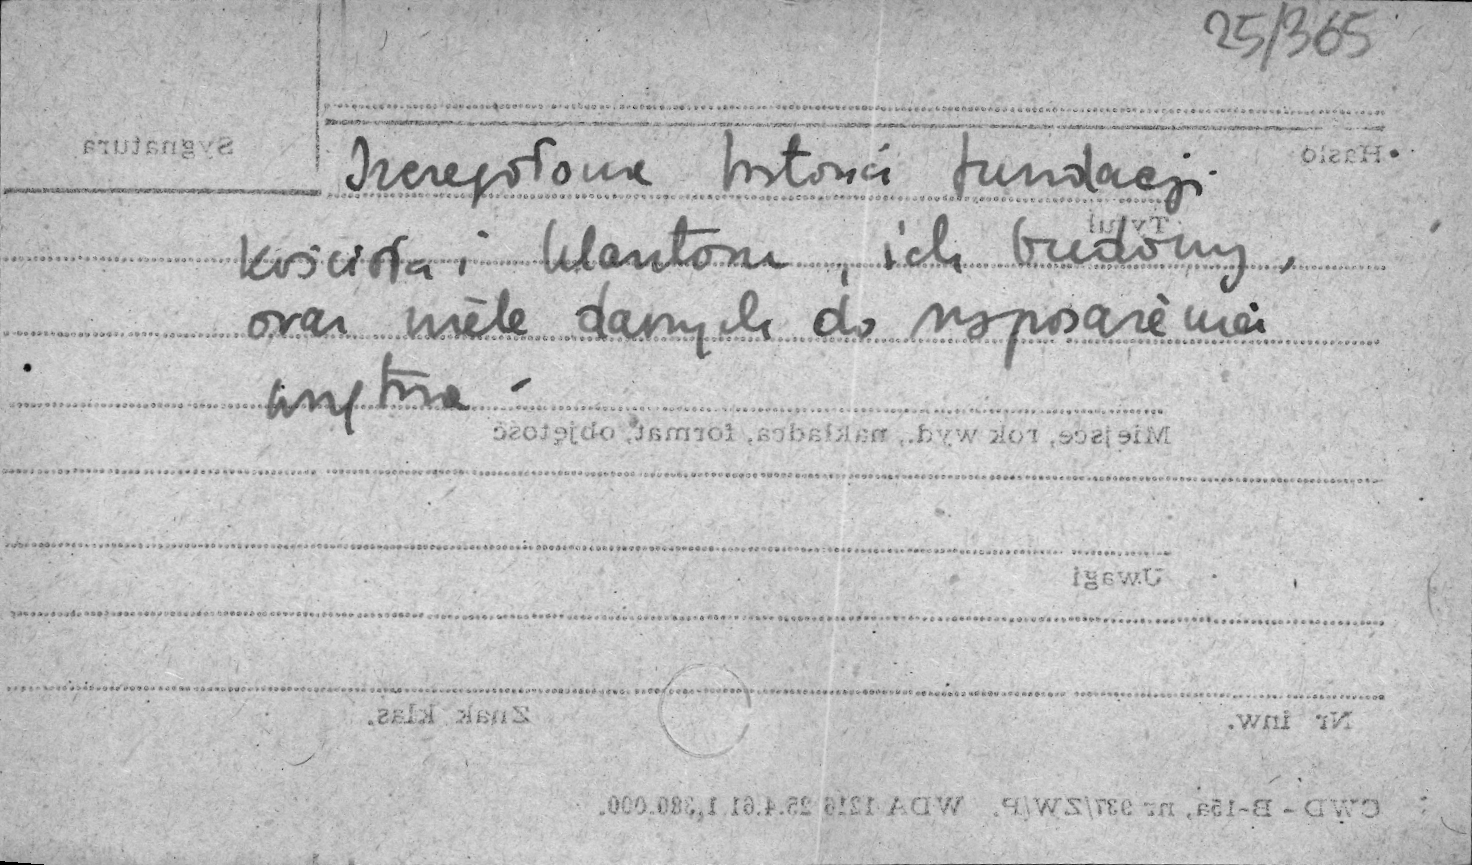 25/365
Sygnatura
Hasło
Szczegółowa historia fundacji
Tytuł
kościoła i klasztoru, ich budowy,
oraz wiele danych do wyposażenia
wnętrza
Miejsce, rok wyd., nakładca, format, objętość
Uwagi
Znak klas.
Nr inw.
CWD - B-15a, nr 937/ZW/P. WDA 1216 25.4.61 1,380.000.